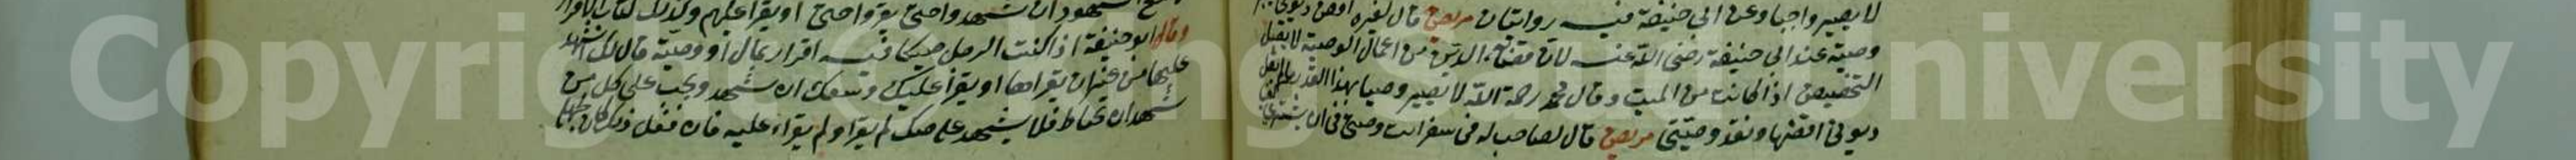 لا يصير واجبا وعن ابي حنيفة فيه روايتان مريض قال لغيره اقض ديوني
وصية عند ابي حنيفة رضى الله عنه لان قضاء الدين من اعمال الوصية لا يقبل
التخصيص اذا كانت من الميت وقال محمد رحمة الله لا يصير وصيا بهذا القدر
ديوني اقضها ونفذ وصيتي مريض قال لصاحب له في سفر انت وصيي في ان يشتري
الشهود ان شهد واحتى يقرؤا حتى او يقرأ عليهم وكذلك كتاب الاقرار
وقال ابو حنيفة اذا كتب الرجل صكا فيه اقرار بمال او وصية قال لك اشهد
عليها من غير ان يقراها او يقرأ عليك وسعك ان تشهد ويجب على كل من
شهد ان يحتاط فلا يشهد على صك لم يقرا ولم يقراء عليه فان فعل ذلك كان
Copyright University